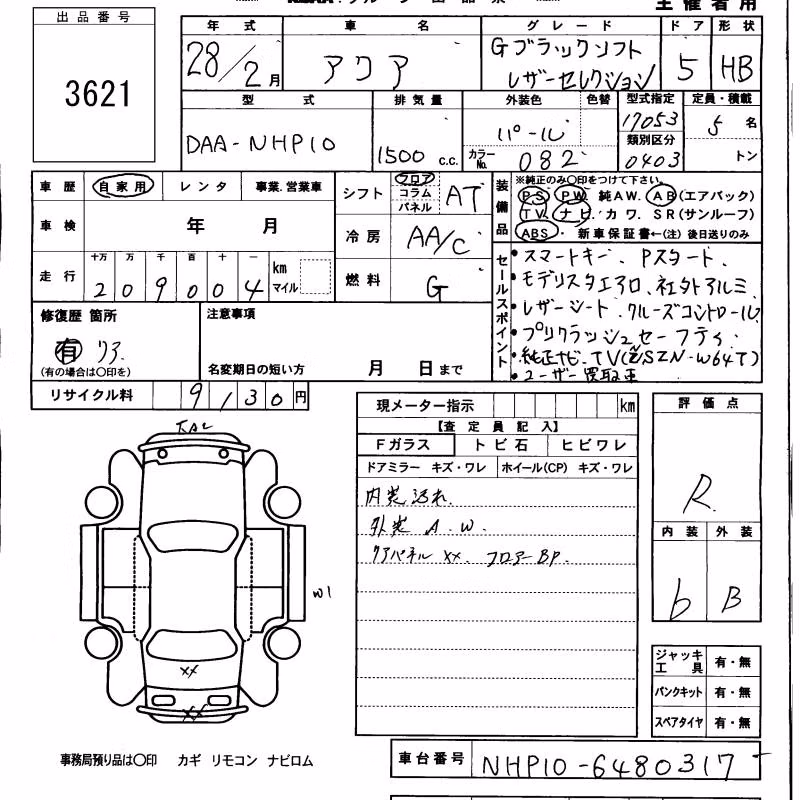 主催者用
出品番号
3621
年式 車名 グレード ドア 形状
28/2月 アクア Gブラックソフトレザーセレクション 5 HB
型式 排気量 外装色 色替 型式指定 定員・積載
DAA-NHP10 1500 c.c. パール カラーNo. 082 17053 5名
類別区分 0403 トン
車歴 自家用 レンタ 事業.営業車
シフト フロア コラム パネル AT
装備品 ※純正のみ〇印をつけて下さい。
PS PW 純AW. AB(エアバック)
TV. ナビ. カワ. SR(サンルーフ)
ABS・ 新車保証書←(注)後日送りのみ
車検 年 月
冷房 AA/C
走行 十万 万 千 百 十 一
209004 km マイル
燃料 G
セールスポイント
・スマートキー、Pスタート、
・モデリスタエアロ、社外アルミ、
・レザーシート、クルーズコントロール
・プリクラッシュセーフティ
・純正ナビ、TV(NSZN-W64T)
・ユーザー買取車
修復歴 箇所
有 リア
(有の場合は〇印を)
注意事項
名変期日の短い方 月 日まで
リサイクル料 9130円
現メーター指示 km
【査定員記入】
Fガラス トビ石 ヒビワレ
ドアミラー キズ・ワレ ホイール(CP) キズ・ワレ
内装汚れ.
外装 A.W.
リアパネル XX. フロアー BP.
評価点
R
内装 外装
b B
W1
XX
XX
ジャッキ工具 有・無
パンクキット 有・無
スペアタイヤ 有・無
事務局預り品は〇印 カギ リモコン ナビロム
車台番号 NHP10-6480317